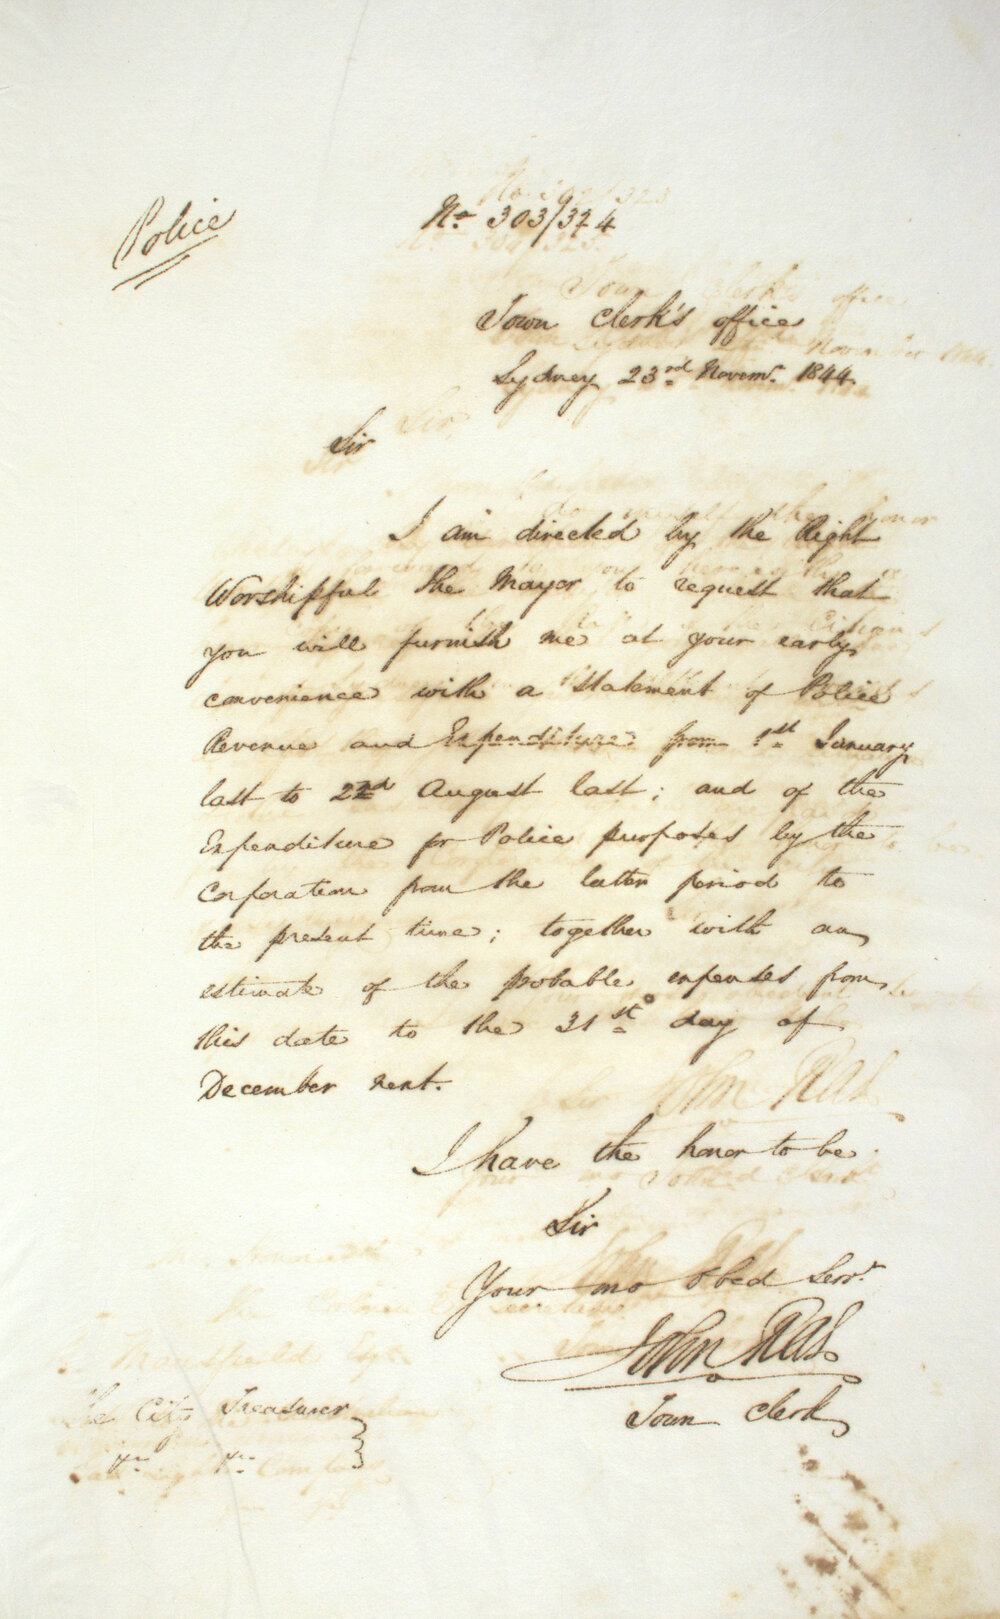 Police
No. 303/324
Town Clerk's office
Sydney 23rd Novemr. 1844
Sir
I am directed by the Right
Worshipful the Mayor to request that
you will furnish me at your early
convenience with a statement of Police
Revenue and Expenditure from 1st January
last to 22nd August last; and of the
Expenditure for Police purposes by the
Corporation from the latter period to
the present time; together with an
estimate of the probable expenses from
this date to the 31st day of
December next.
I have the honor to be
Sir
Your mo obed Servt.
John Rae
Town Clerk
The City Treasurer
&c. &c.